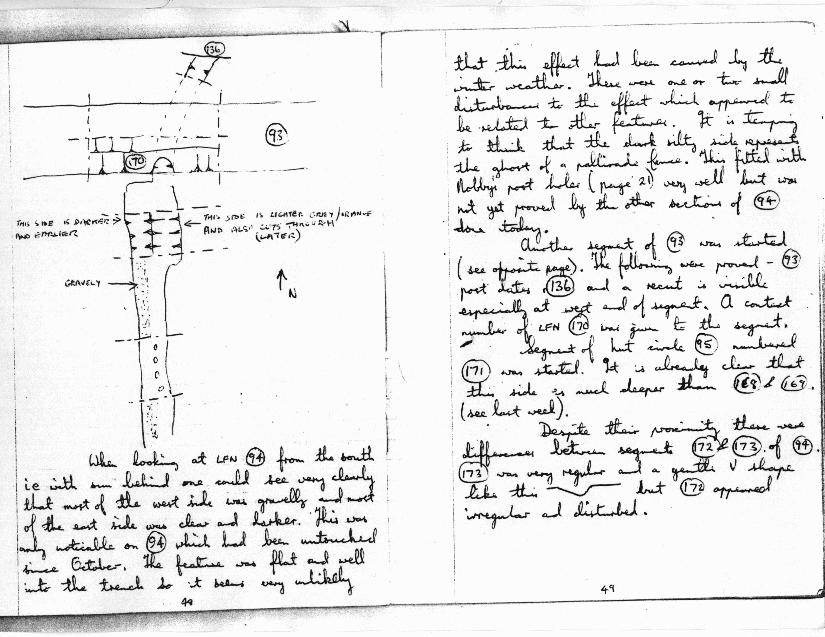 136
93
170
THIS SIDE IS DARKER
AND EARLIER
THIS SIDE IS LIGHTER GREY/ORANGE
AND ALSO CUTS THROUGH
(LATER)
GRAVELY
N
When looking at LFN 94 from the south
ie with sun behind one could see very clearly
that most of the west side was gravelly and most
of the east side was clear and darker. This was
only noticable on 94 which had been untouched
since October. The feature was flat and well
into the trench so it seems very unlikely
48
that this effect had been caused by the
winter weather. There were one or two small
disturbances to the effect which appeared to
be related to other features. It is tempting
to think that the dark silty side represents
the ghost of a pallisade fence. This fitted with
Robby's post holes (page 21) very well but was
not yet proved by the other sections of 94
done today.
Another segment of 93 was started
(see opposite page). The following were proved - 93
post dates 136 and a recut is visible
especially at west end of segment. A context
number of LFN 170 was given to the segment.
Segment of hut circle 95 numbered
171 was started. It is already clear that
this side is much deeper than 168 & 169
(see last week).
Despite their proximity there were
differences between segments 172 & 173 of 94.
173 was very regular and a gentle V shape
like this but 172 appeared
irregular and disturbed.
49